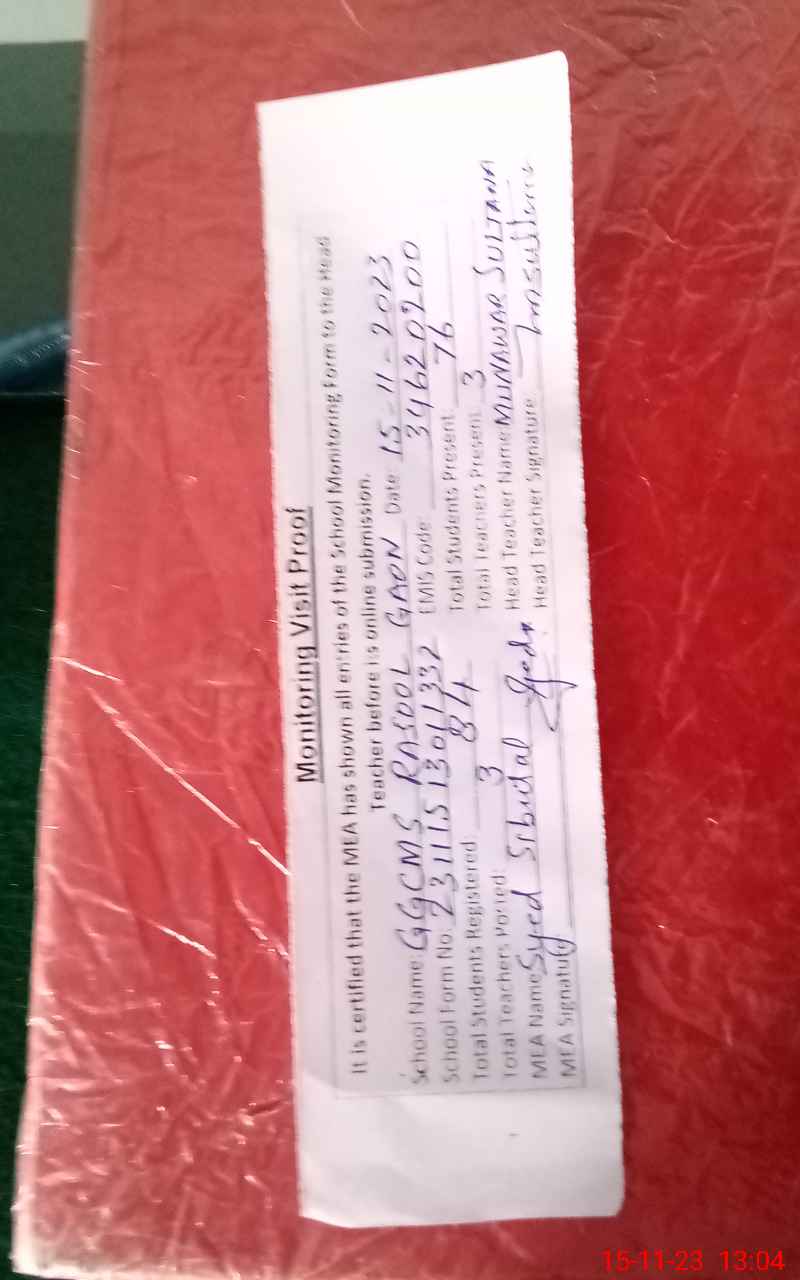 Monitoring Visit Proof
It is certified that the MEA has shown all entries of the School Monitoring Form to the Head
Teacher before its online submission.
School Name: GGCMS RASOOL GAON Date: 15-11-2023
School Form No: 23111513011332 EMIS Code: 34620200
Total Students Registered: 84 Total Students Present: 76
Total Teachers Posted: 3 Total Teachers Present: 3
MEA Name: Syed Sibtal Head Teacher Name: MUNAWAR SULTANA
MEA Signature Head Teacher Signature: msultana
15-11-23 13:04